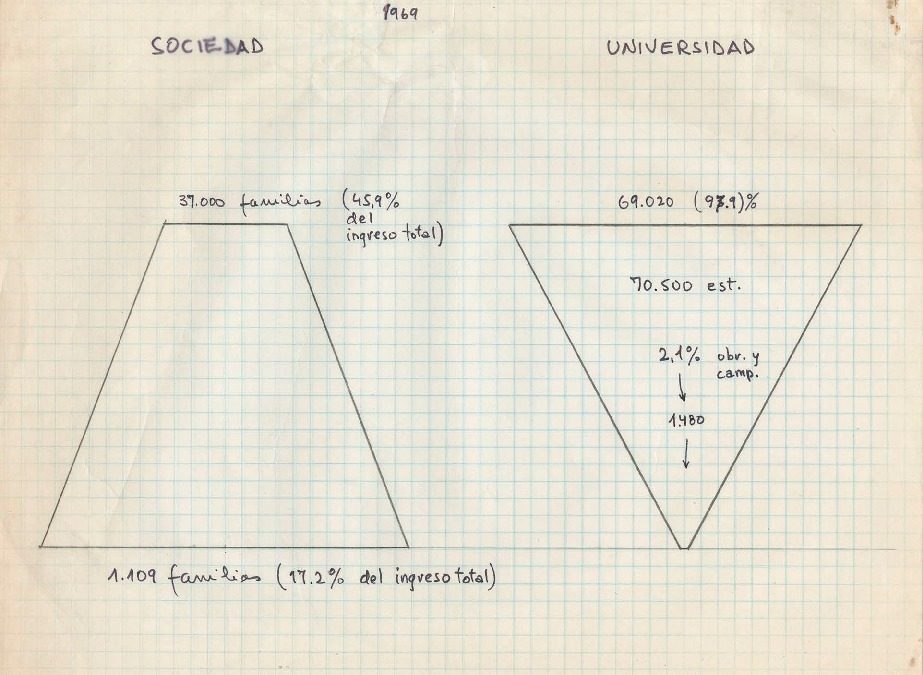 1969
SOCIEDAD
UNIVERSIDAD
37.000 familias (45,9%
del
ingreso total)
69.020 (97.9)%
70.500 est.
2,1% obr. y
camp.
1.480
1.109 familias (17.2% del ingreso total)